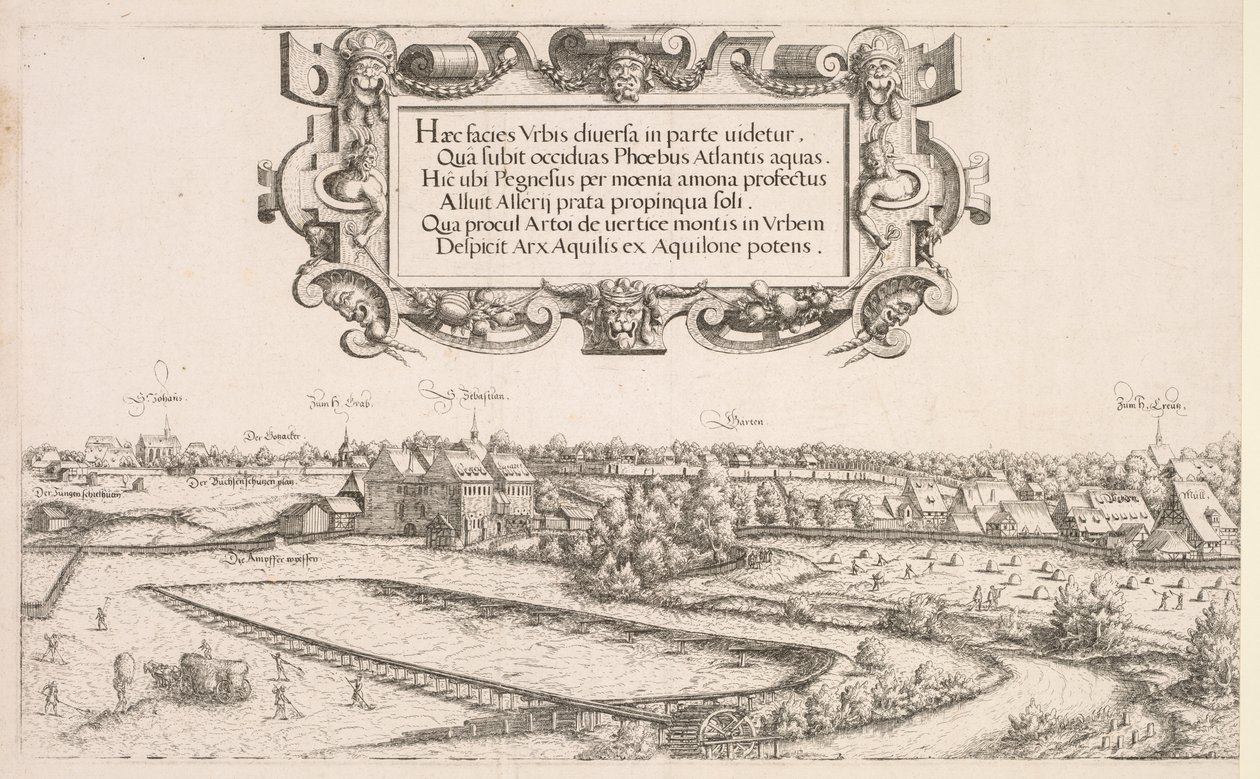 Hæc facies Vrbis diuersa in parte uidetur,
Quâ subit occiduas Phœbus Atlantis aquas.
Hic ubi Pegnesus per mœnia amona profectus
Alluit Allerij prata propinqua soli.
Qua procul Artoi de uertice montis in Vrbem
Despicit Arx Aquilis ex Aquilone potens.
S. Johans.
Zum H. Grab.
S. Sebastian.
Gärten.
Zum H. Creutz.
Der
Der Büchsenschützen plan.
Der Jungen schieshütt
Müll.
Die wissen